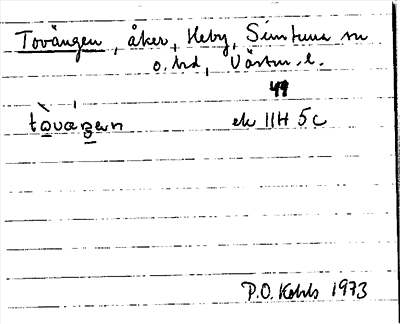 Tovängen, åker, Heby, Simtuna sn
o. hd, Västm. l.
49
tòvaŋen ek 11H 5c
P.O. Kohls 1973